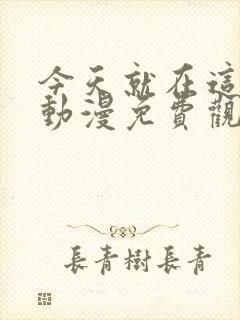 今天就在這
動漫免費觀
長青樹長青